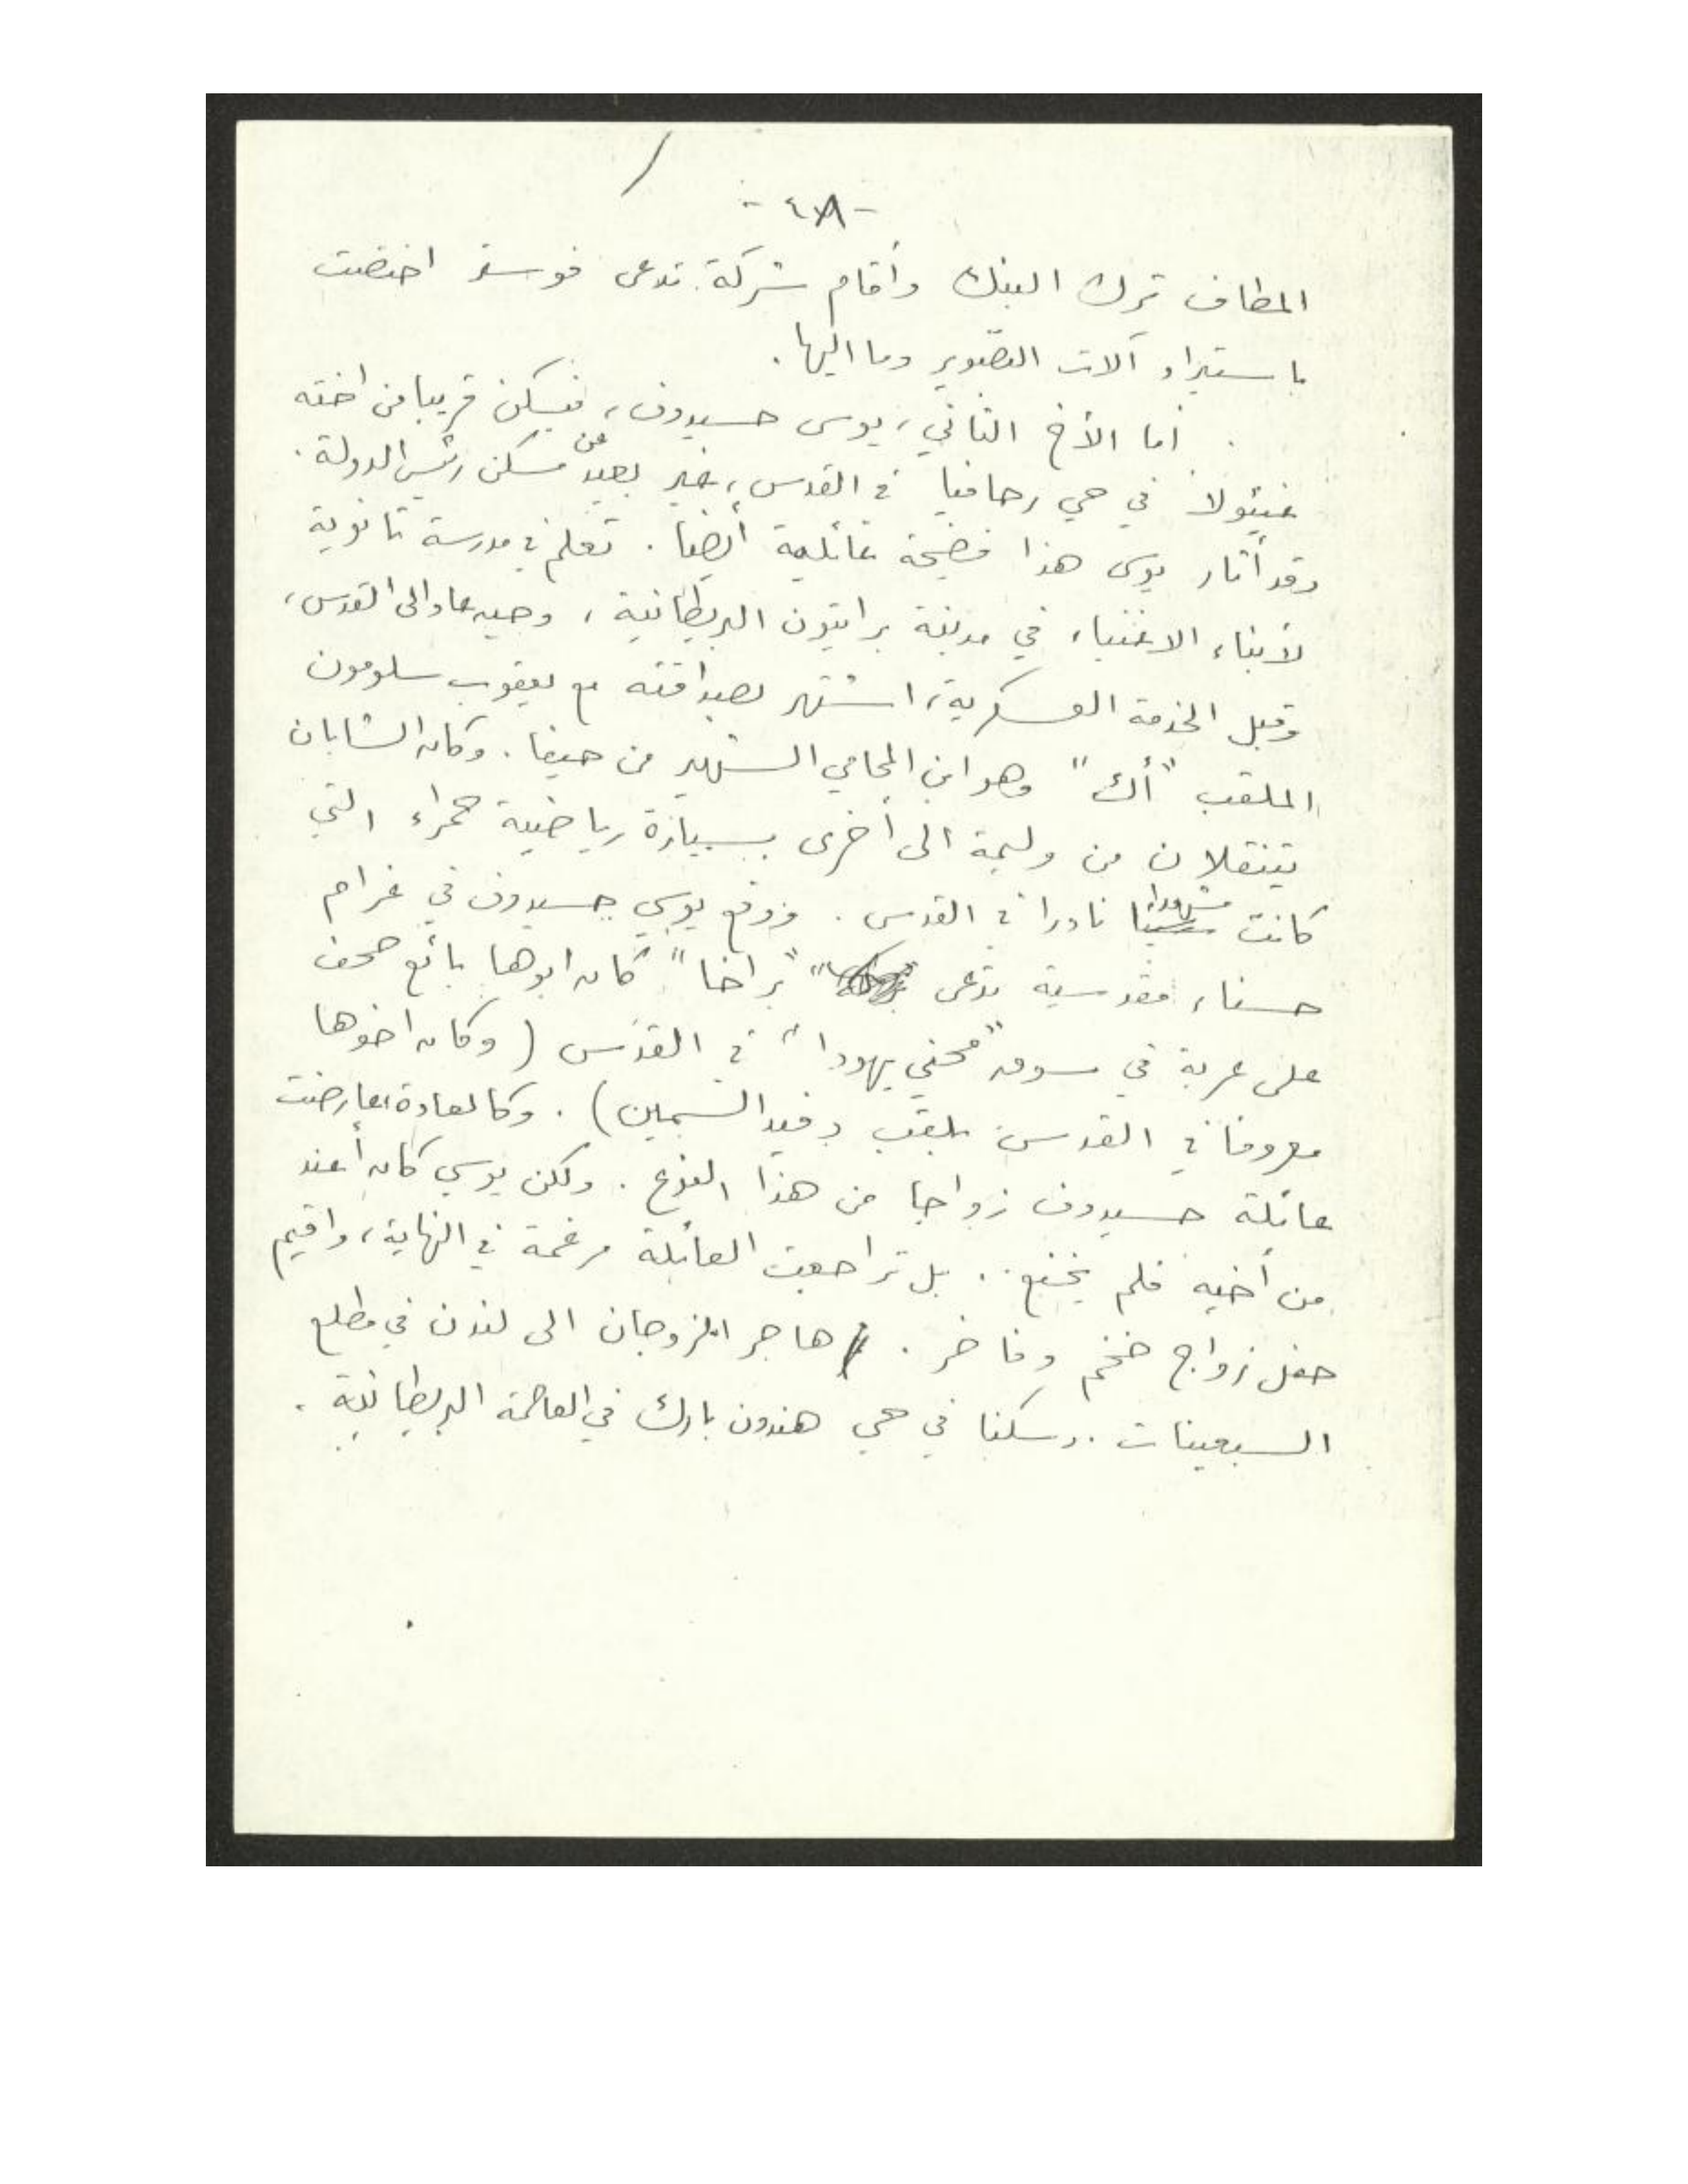 - ٤٨ -
المطاف ترك البنك وأقام شركة تدعى اختصت
باستيراد آلات التصوير وما اليها .
أما الأخ الثاني، يوسي حسيدوف، فيسكن قريبا من اخته
فيئولا في حي رحافيا في القدس، غير بعيد عن مسكن رئيس الدولة .
وقد أثار يوسي هذا فضيحة عائلية أيضا . تعلم في مدرسة ثانوية
لأبناء الاغنياء في مدينة برايتون البريطانية ، وحين عاد الى القدس،
وقبل الخدمة العسكرية، اشتهر بصداقته مع يعقوب سلومون
الملقب "أك" وهو ابن المحامي الشهير من حيفا . وكان الشابان
يتنقلان من وليمة الى أخرى بسيارة رياضية حمراء التي
كانت مشهدا نادرا في القدس . ووقع يوسي حسيدوف في غرام
حسناء مقدسية تدعى "براخا" كان ابوها بائع صحف
على عربة في سوق "محني يهودا" في القدس ( وكان اخوها
معروفا في القدس بلقب دفيد السمين) . وكالعادة عارضت
عائلة حسيدوف زواجا من هذا النوع . ولكن يوسي كان أعند
من أخيه فلم يخنع .. بل تراجعت العائلة مرغمة في النهاية، واقيم
حفل زواج ضخم وفاخر . هاجر الزوجان الى لندن في مطلع
السبعينات . وسكنا في حي هندون بارك في العاصمة البريطانية .